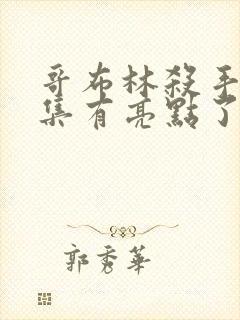 哥布林殺手
集有亮點了
郭秀華